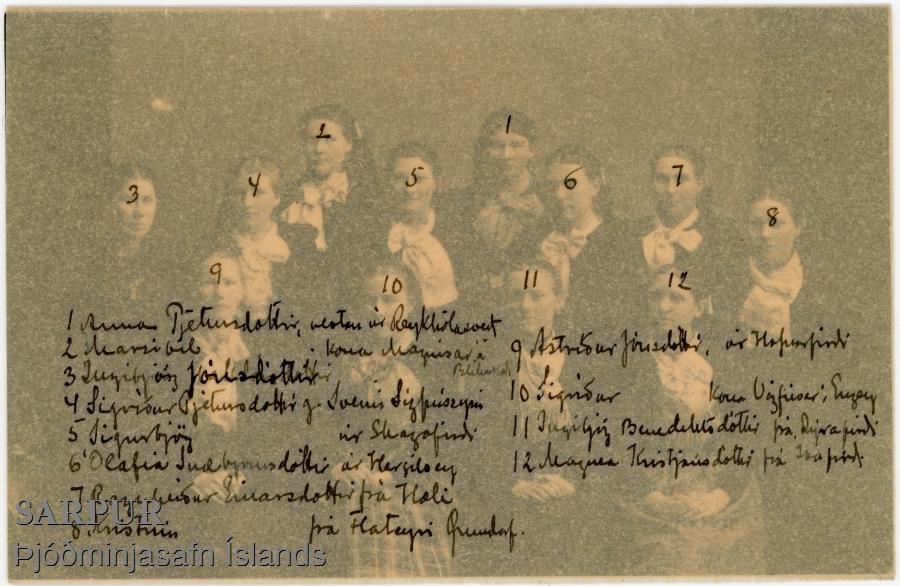 2 1
3 4 5 6 7 8
9 10 11 12
1 Anna Pjetursdóttir, vestan úr Reykhólasveit
2 Marsibil kona Magnúsar á
3 Ingibjörg Jónsdóttir
4 Sigríður Pjetursdóttir g. Sveini Sigfússyni
5 Sigurbjörg úr Skagafirdi
6 Ólafia Sveinbjörnsdóttir úr Hergilsey
7 Ragnheiður Einarsdóttir frá Hæli
8 Kristín frá Hateyri Grundarf.
9 Ástríður Jónsdóttir, úr Hafnarfirdi
10 Sigríður Kona Vigfúsar í Engey
11 Ingibjörg Benediktsdóttir frá Dýrafirdi
12 Magnea Kristjánsdóttir frá Ísafirdi
SARPUR
Þjóðminjasafn Íslands